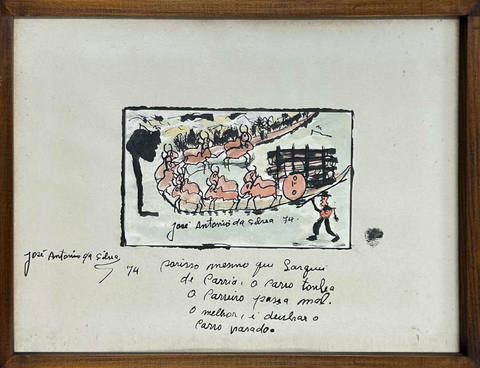 José Antonio da Silva 74.
José Antonio da Silva 74
porisso mesmo que Larguei
de Carria, o Carro tonba
O Carreiro passa mal.
O melhor, é deichar o
Carro parado.